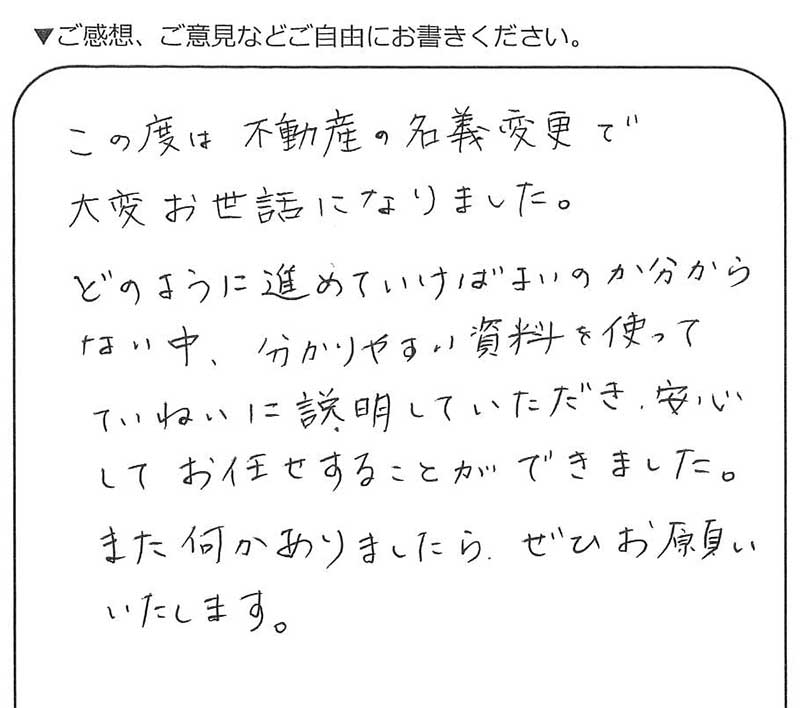 ▼ご感想、ご意見などご自由にお書きください。
この度は 不動産の名義変更で
大変お世話になりました。
どのように進めていけばよいのか分から
ない中、分かりやすい資料を使って
ていねいに説明していただき、安心
して お任せすることができました。
また何かありましたら、ぜひお願い
いたします。